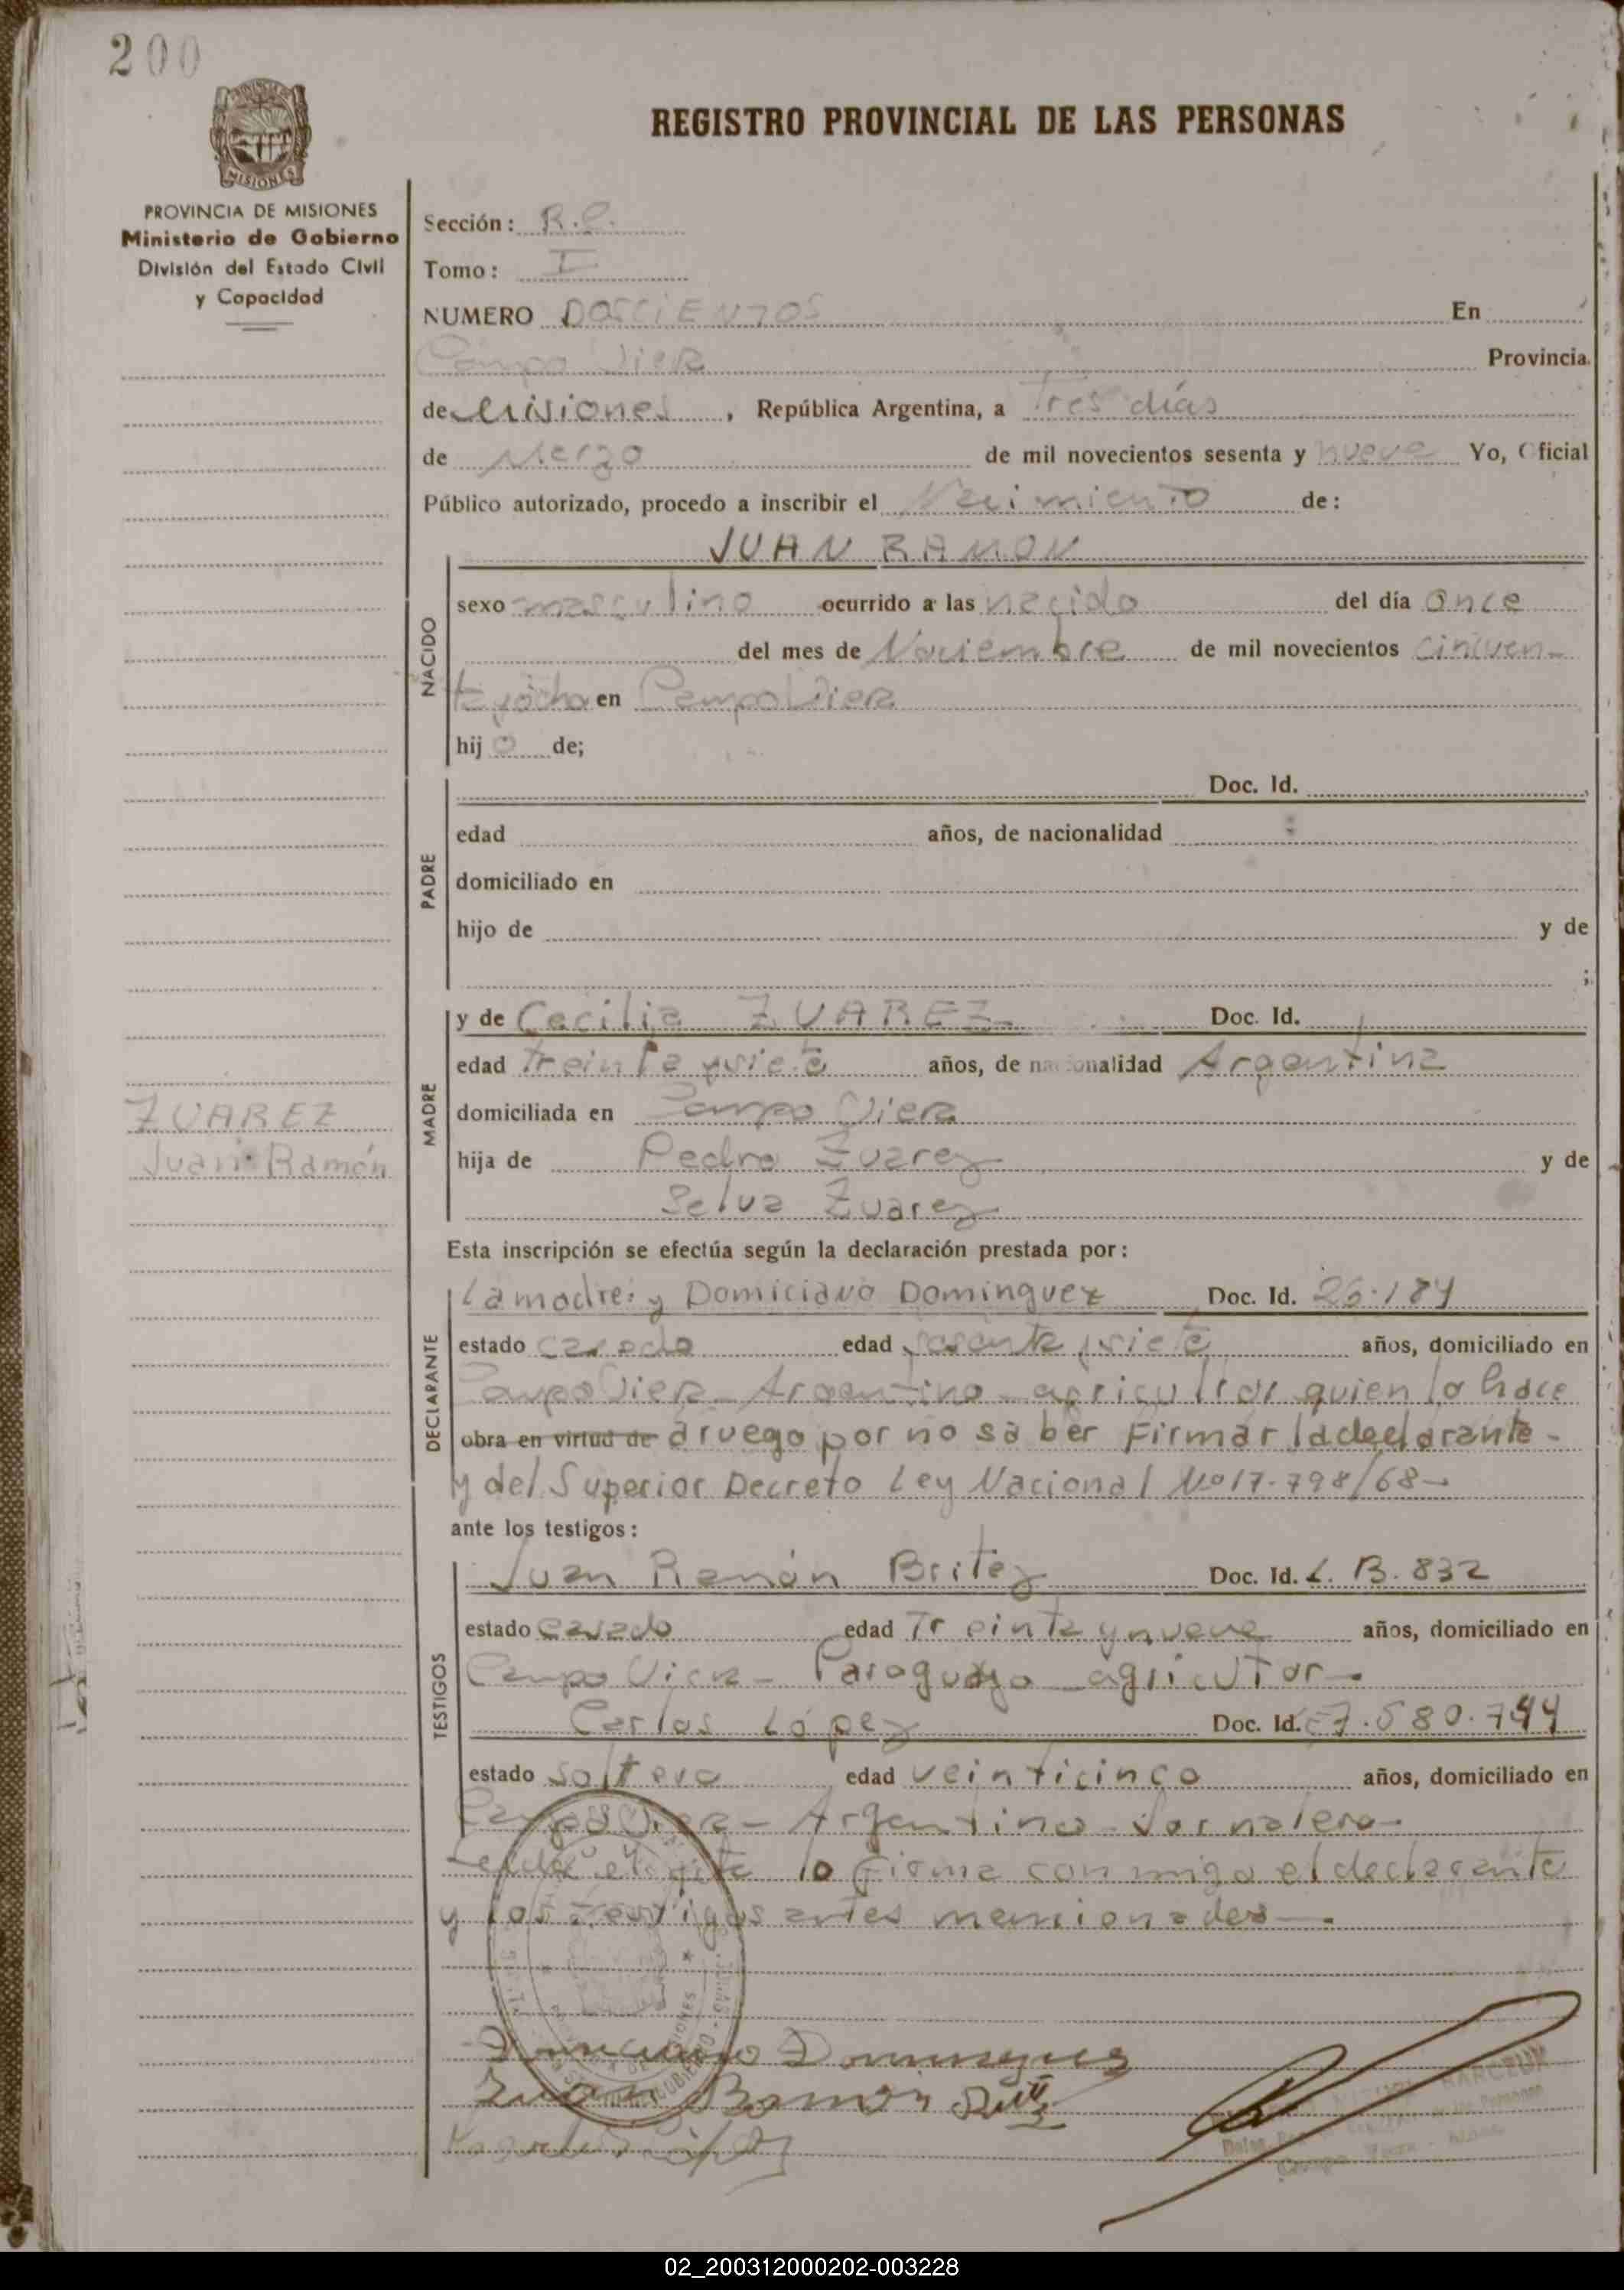 200
MISIONES
PROVINCIA DE MISIONES
Ministerio de Gobierno
División del Estado Civil
y Capacidad
REGISTRO PROVINCIAL DE LAS PERSONAS
Sección: R.C.
Tomo: I
NUMERO DOSCIENTOS En
Campo Viera Provincia
de Misiones, República Argentina, a Tres días
de Marzo de mil novecientos sesenta y nueve Yo, Oficial
Público autorizado, procedo a inscribir el Nacimiento de:
JUAN RAMON
NACIDO
sexo masculino ocurrido a las nacido del día once
del mes de Noviembre de mil novecientos cincuen-
ta y ocho en Campo Viera
hijo de;
PADRE
Doc. Id.
edad años, de nacionalidad
domiciliado en
hijo de y de
;
MADRE
y de Cecilia ZUAREZ Doc. Id.
edad Treinta y siete años, de nacionalidad Argentina
domiciliada en Campo Viera
hija de Pedro Zuarez y de
Selva Zuarez
ZUAREZ
Juan Ramón
Esta inscripción se efectúa según la declaración prestada por:
DECLARANTE
La madre: y Domiciano Dominguez Doc. Id. 26.184
estado casado edad sesenta y siete años, domiciliado en
Campo Viera - Argentino - agricultor quien lo hace
obra en virtud de a ruego por no saber Firmar la declarante -
y del Superior Decreto Ley Nacional Nº 17.798/68 -
ante los testigos:
TESTIGOS
Juan Ramón Britez Doc. Id. C. 13.832
estado casado edad Treinta y nueve años, domiciliado en
Campo Viera - Paraguayo agricutor -
Carlos López Doc. Id. 7.580.744
estado soltero edad veinticinco años, domiciliado en
Campo Viera - Argentino - Jornalero -
Leída el acta la firma con migo el declarante
y los testigos antes mencionados -
Domiciano Dominguez
Juan Ramon
02_200312000202-003228